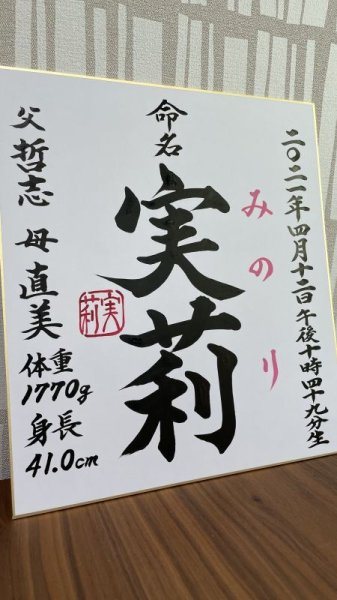 二〇二一年四月十二日 午後十時四十九分生
みのり
命名
実莉
実莉
父 哲志 母 直美
体重
1770g
身長
41.0cm